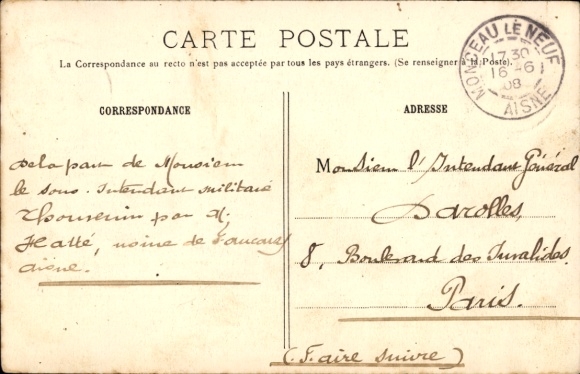 CARTE POSTALE
La Correspondance au recto n'est pas acceptée par tous les pays étrangers. (Se renseigner à la Poste).
MONCEAU LE NEUF
17 30
16 -6
08
AISNE
CORRESPONDANCE
De la part de Monsieur
le sous-Intendant militaire
Thouvenin par M.
Hatté, maire de
Aisne.
ADRESSE
Monsieur l'Intendant Général
Darolles,
8, Boulevard des Invalides
Paris.
(Faire suivre)